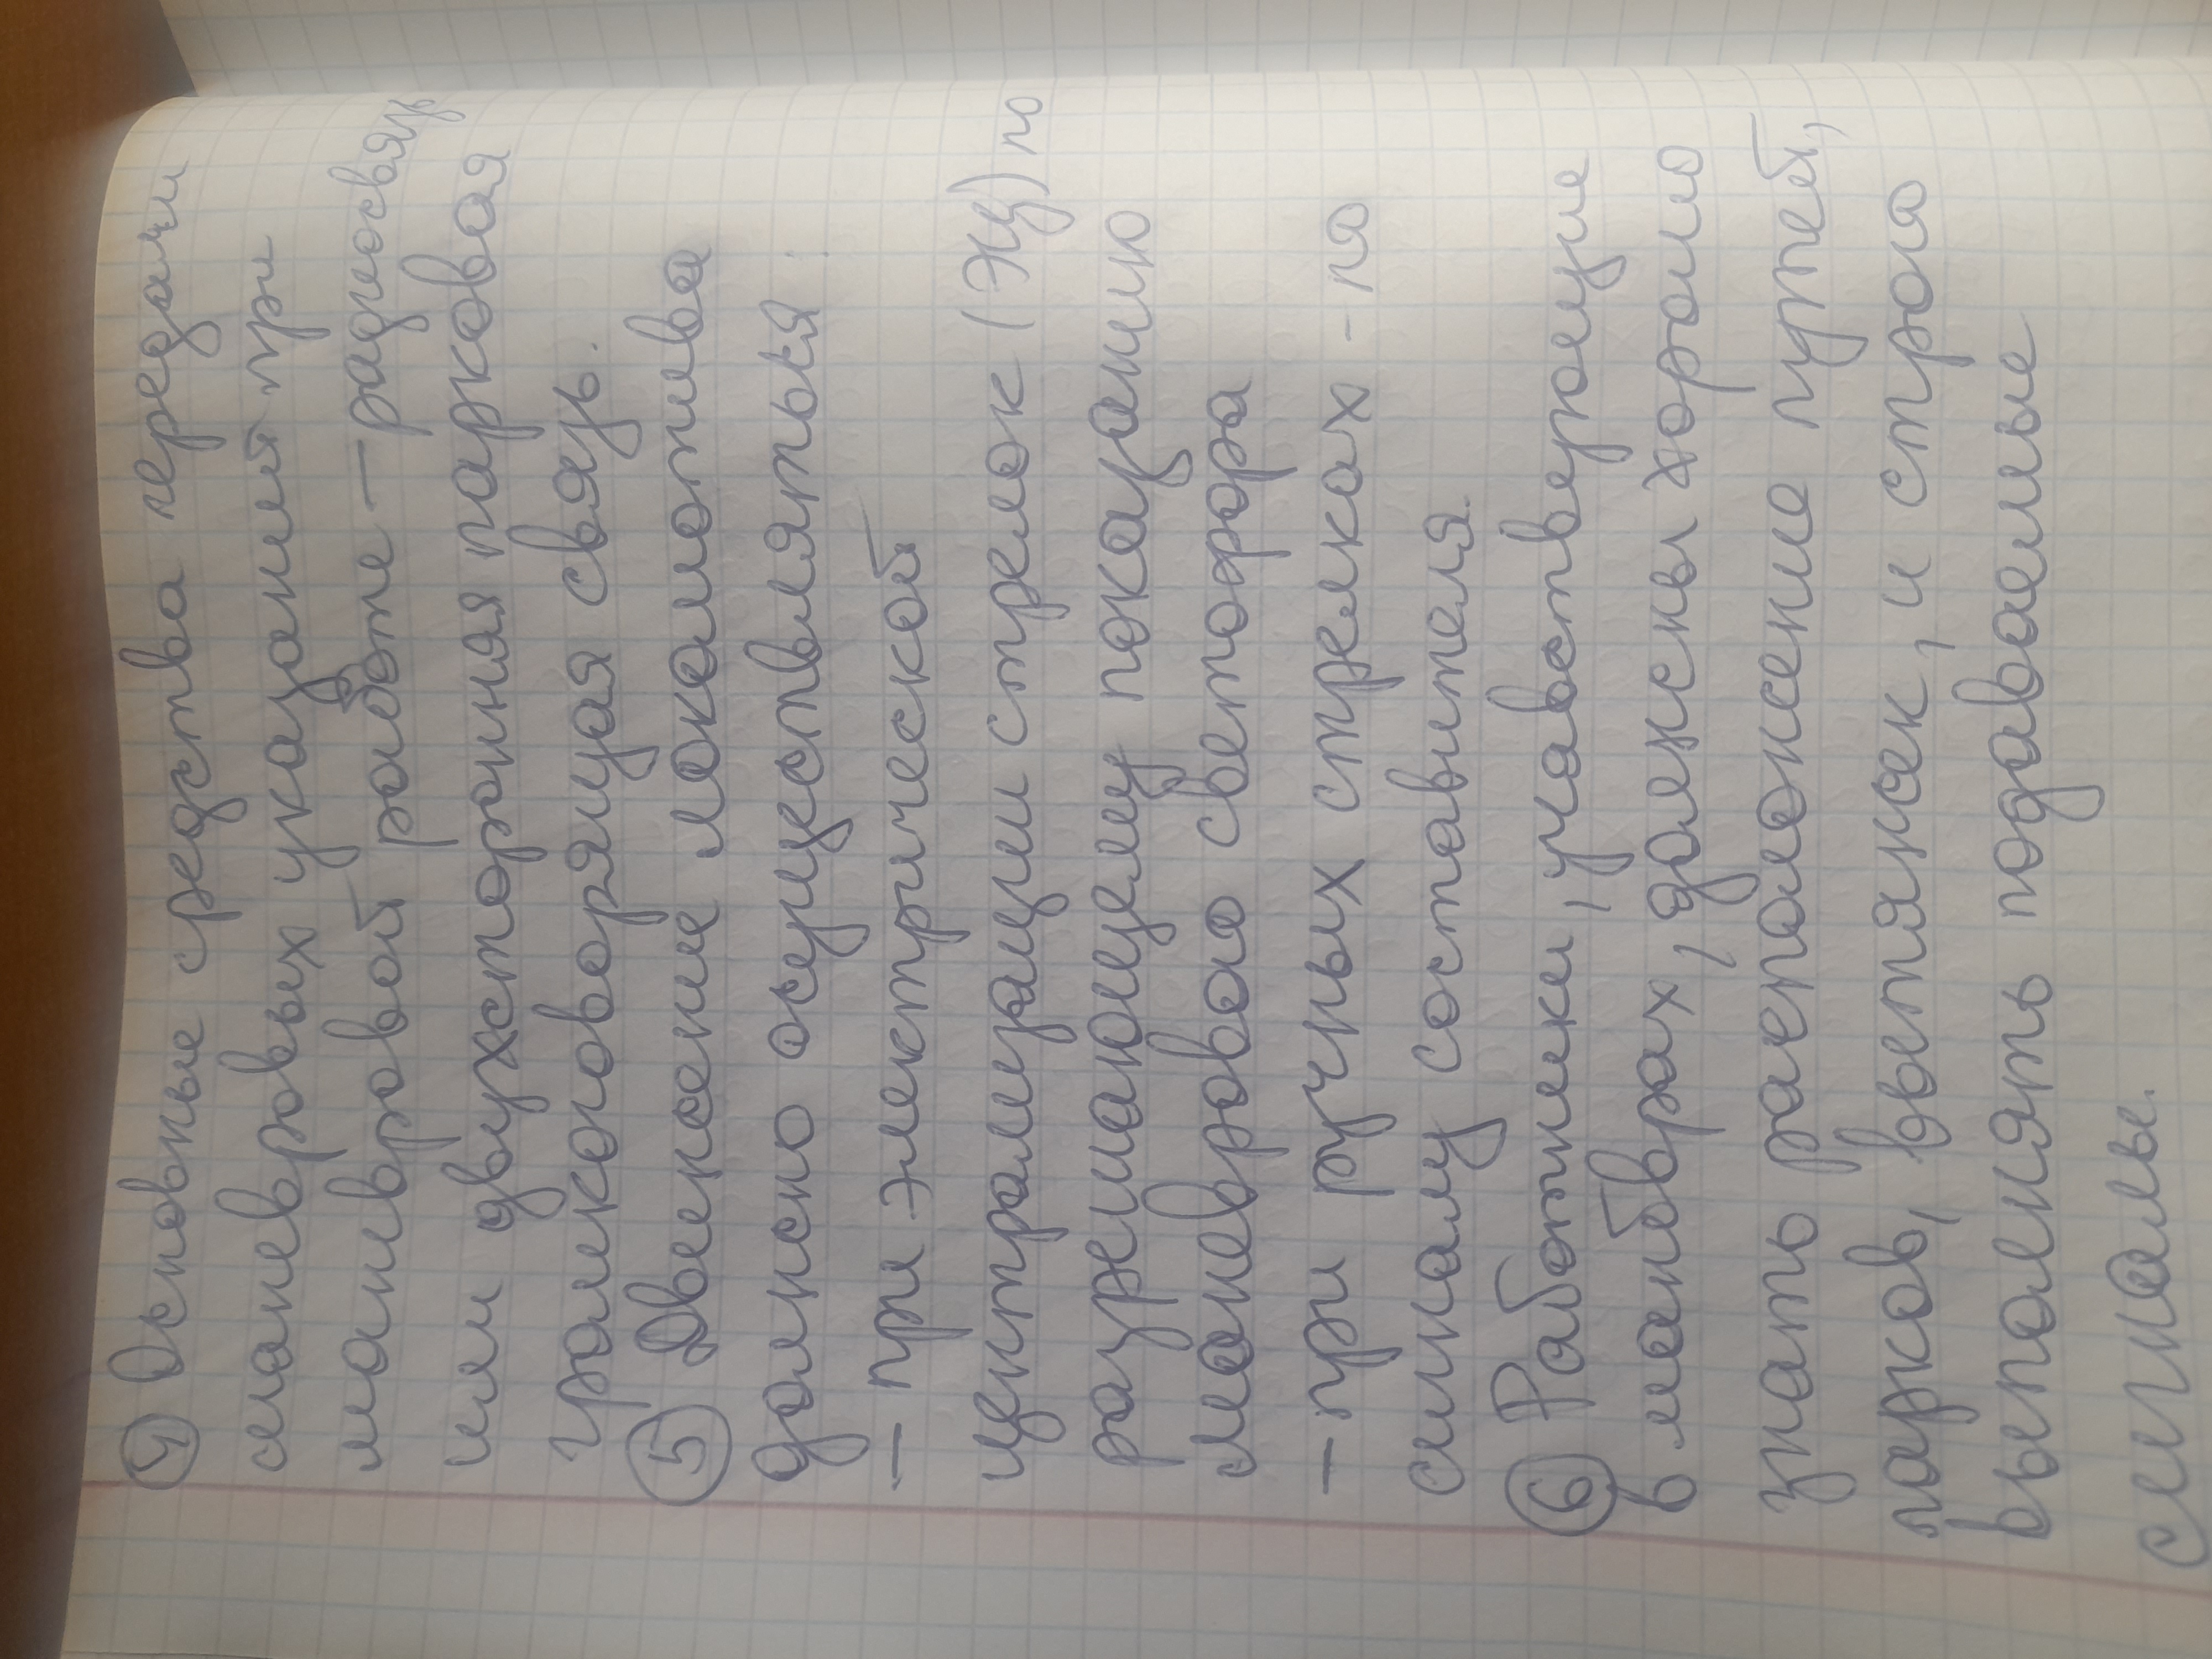 ④ Основные средства передачи
маневровых указаний при
маневровой работе – радиосвязь
или двухсторонняя парковая
громкоговорящая связь.
⑤ Движение локомотива
должно осуществляться:
– при электрической
централизации стрелок (ЭЦ) по
разрешающему показанию
маневрового светофора
– при ручных стрелках - по
сигналу составителя.
⑥ Работники, участвующие
в манёврах, должны хорошо
знать расположение путей,
парков, вытяжек, и строго
выполнять подаваемые
сигналы.